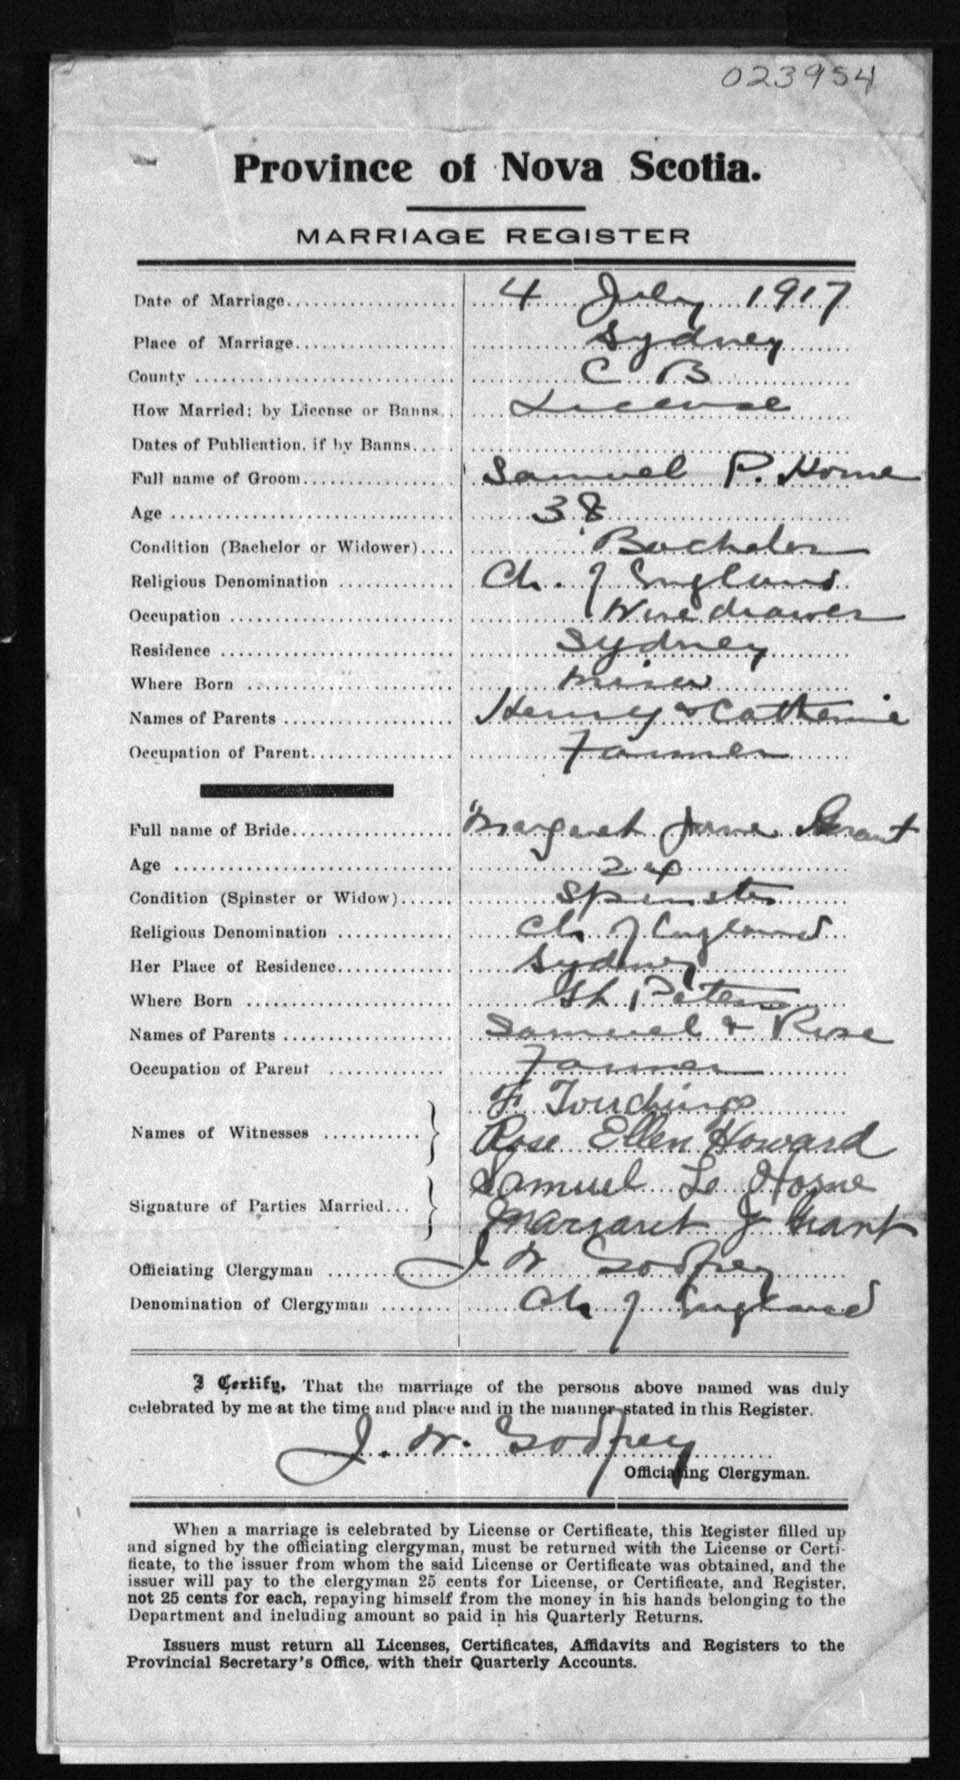 023954
Province of Nova Scotia.
MARRIAGE REGISTER
Date of Marriage 4 July 1917
Place of Marriage Sydney
County C B
How Married: by License or Banns License
Dates of Publication, if by Banns
Full name of Groom Samuel P. Horne
Age 38
Condition (Bachelor or Widower) Bachelor
Religious Denomination Ch. of England
Occupation Wire drawer
Residence Sydney
Where Born
Names of Parents Henry & Catherine
Occupation of Parent Farmer
Full name of Bride Margaret Jane Grant
Age
Condition (Spinster or Widow) Spinster
Religious Denomination Ch of England
Her Place of Residence Sydney
Where Born St Peters
Names of Parents Samuel & Rose
Occupation of Parent Farmer
F Touchings
Names of Witnesses Rose Ellen Howard
Samuel Horne
Signature of Parties Married Margaret J Grant
Officiating Clergyman J W Godfrey
Denomination of Clergyman Ch of England
I Certify, That the marriage of the persons above named was duly
celebrated by me at the time and place and in the manner stated in this Register.
J. W. Godfrey
Officiating Clergyman.
When a marriage is celebrated by License or Certificate, this Register filled up
and signed by the officiating clergyman, must be returned with the License or Certi-
ficate, to the issuer from whom the said License or Certificate was obtained, and the
issuer will pay to the clergyman 25 cents for License, or Certificate, and Register,
not 25 cents for each, repaying himself from the money in his hands belonging to the
Department and including amount so paid in his Quarterly Returns.
Issuers must return all Licenses, Certificates, Affidavits and Registers to the
Provincial Secretary's Office, with their Quarterly Accounts.